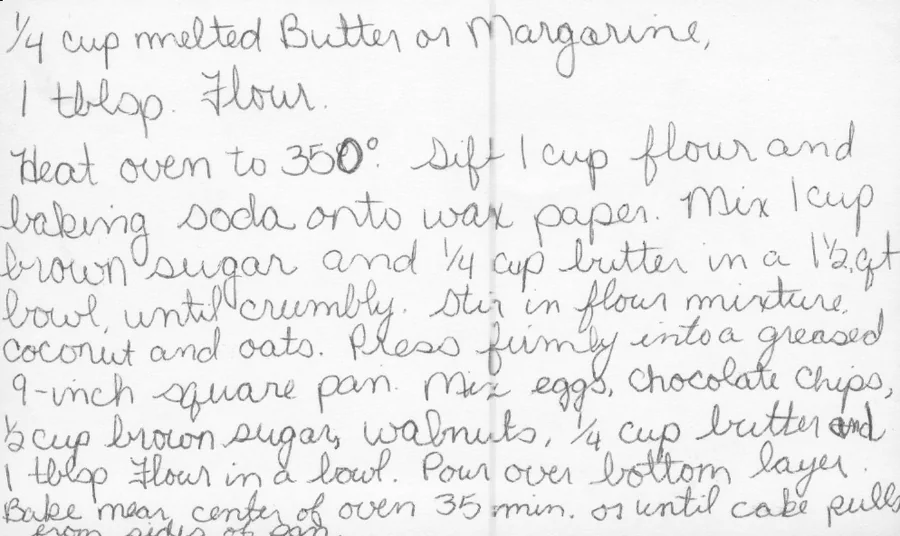 1/4 cup melted Butter or Margarine,
1 tblsp. Flour.
Heat oven to 350°. Sift 1 cup flour and
baking soda onto wax paper. Mix 1 cup
brown sugar and 1/4 cup butter in a 1 1/2 qt
bowl, until crumbly. Stir in flour mixture,
coconut and oats. Press firmly into a greased
9-inch square pan. Mix eggs, chocolate chips,
1/2 cup brown sugar, walnuts, 1/4 cup butter and
1 tblsp Flour in a bowl. Pour over bottom layer.
Bake near center of oven 35 min. or until cake pulls
from sides of pan.